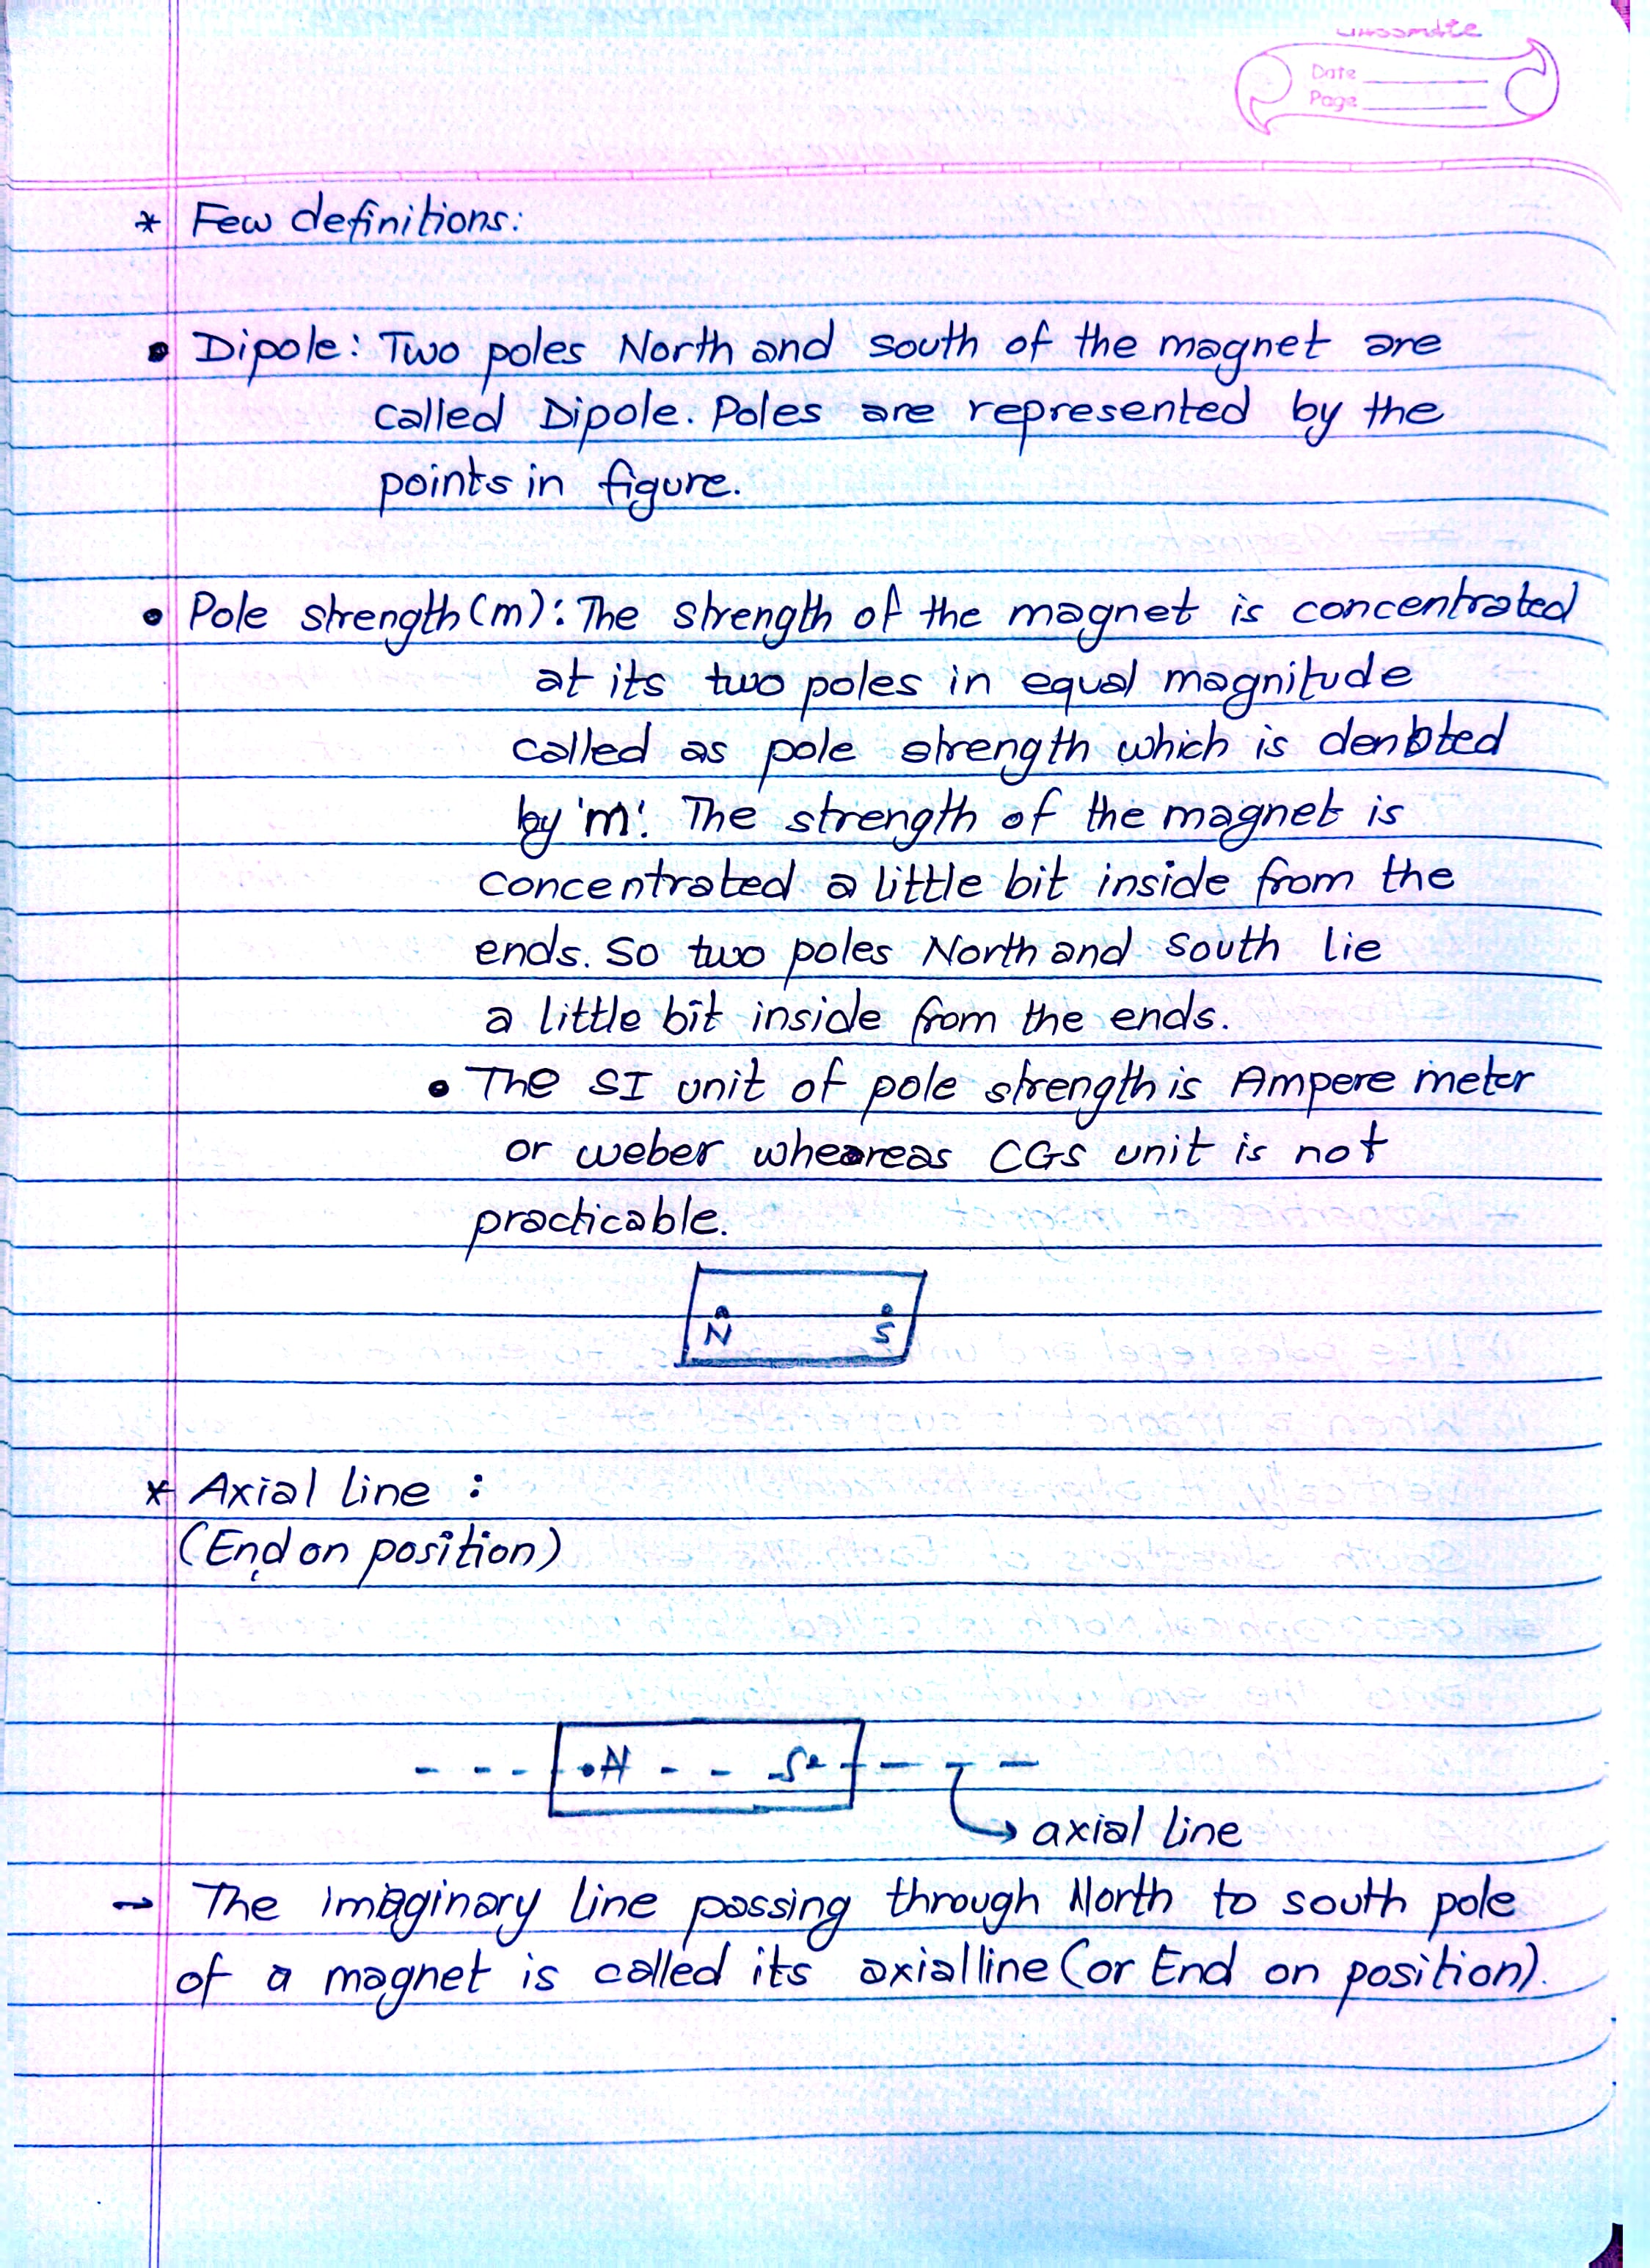 classmate
Date
Page
* Few definitions:
• Dipole: Two poles North and south of the magnet are
called Dipole. Poles are represented by the
points in figure.
• Pole strength (m): The strength of the magnet is concentrated
at its two poles in equal magnitude
called as pole strength which is denoted
by 'm'. The strength of the magnet is
concentrated a little bit inside from the
ends. So two poles North and south lie
a little bit inside from the ends.
• The SI unit of pole strength is Ampere meter
or weber wheareas CGS unit is not
practicable.
N S
* Axial line :
(End on position)
N S
axial line
→ The imaginary line passing through North to south pole
of a magnet is called its axial line (or End on position).